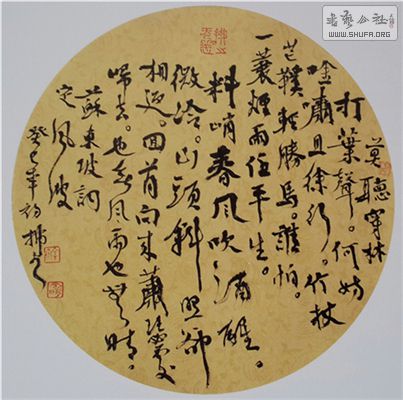 莫聽穿林
打葉聲。何妨
唫嘯且徐行。竹杖
芒鞵輕勝馬。誰怕。
一蓑烟雨任平生。
料峭春風吹酒醒。
微冷。山頭斜照卻
相迎。回首向來蕭瑟處
歸去。也無風雨也無晴。
蘇東坡詞
定風波
癸巳年初
書藝公社
WWW.SHUFA.ORG